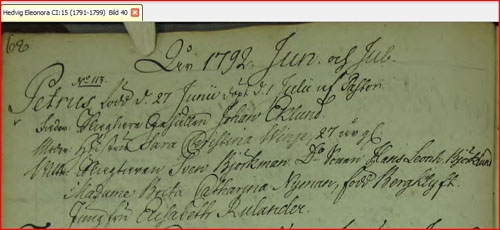 Hedvig Eleonora CI:15 (1791-1799) Bild 40
68
År 1792. Jun. och Jul.
No 113.
Petrus, född d. 27 Junii döpt d. 1 Julii af Pastor.
Fader Johan Eklund
Moder Hustrun Sara Christina Winge, 27 år g.
Sven Björkman. Do Hans Jacob Björklund
Madame Brita Catharina Nyman, född Bergklyft.
Jungfru Elisabeth Rulander.